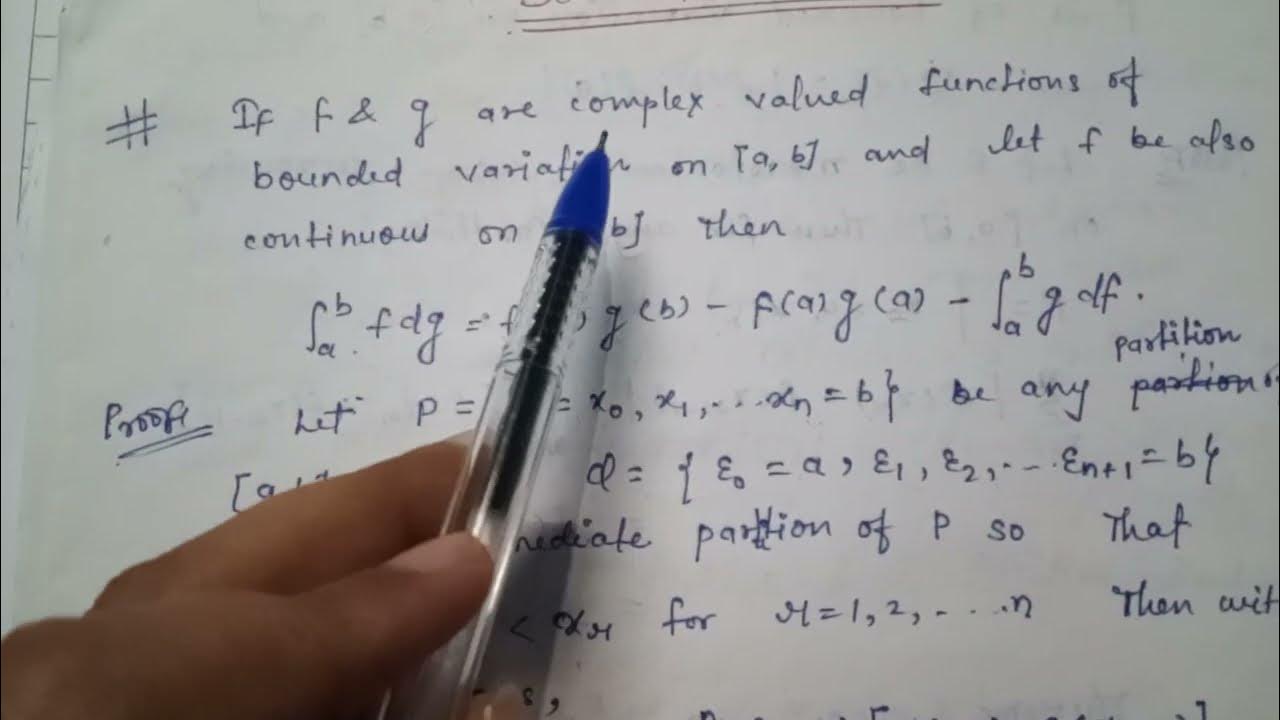 # If f & g are complex valued functions of
bounded variation on [a, b] and let f be also
continuous on b] then
∫ₐᵇ f dg = f , g(b) - f(a) g(a) - ∫ₐᵇ g df.
partition
Proof Let P = = x₀, x₁, ... xₙ = b} be any partion
[a, Q = { ε₀ = a, ε₁, ε₂, ... εₙ₊₁ = b}
mediate partition of P so that
< xᵣ for r = 1, 2, ... n Then